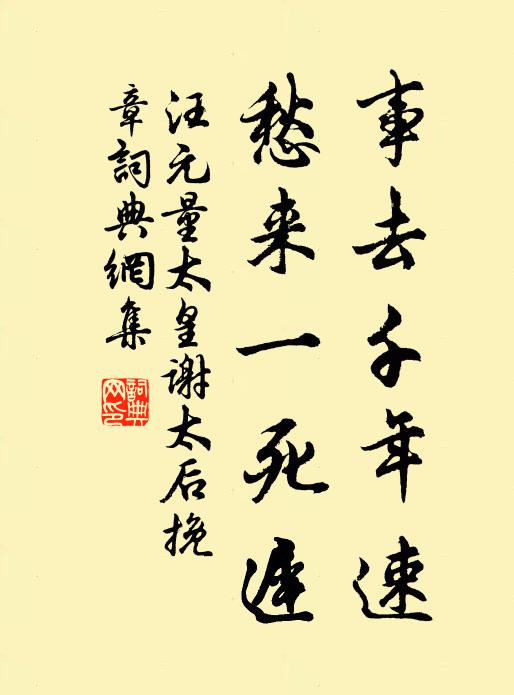 事去千年速
愁来一死遲
汪元量太皇谢太后挽
章詞典網集
詞典
网印